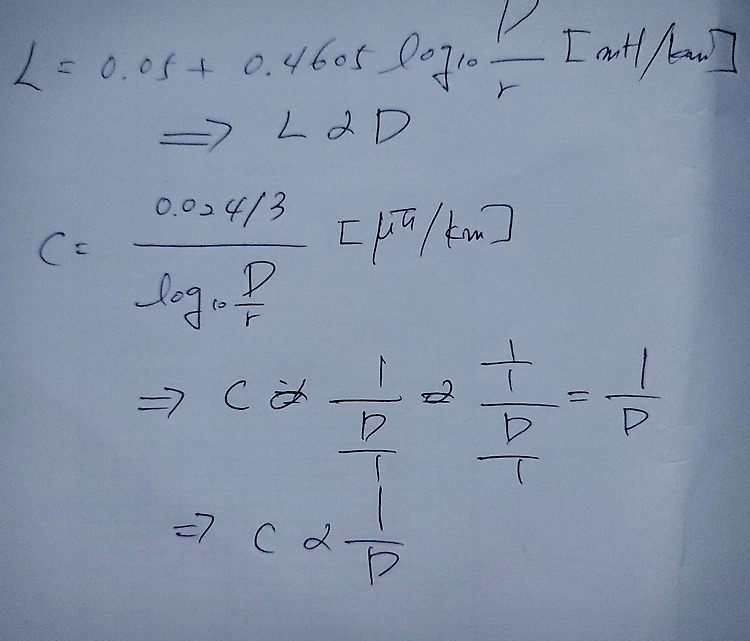 L = 0.05 + 0.4605 log₁₀ D/r [mH/km]
⇒ L ∝ D
C = 0.02413 / log₁₀ D/r [μF/km]
⇒ C ∝ 1/(D/1) ∝ (1/1)/(D/1) = 1/D
⇒ C ∝ 1/D